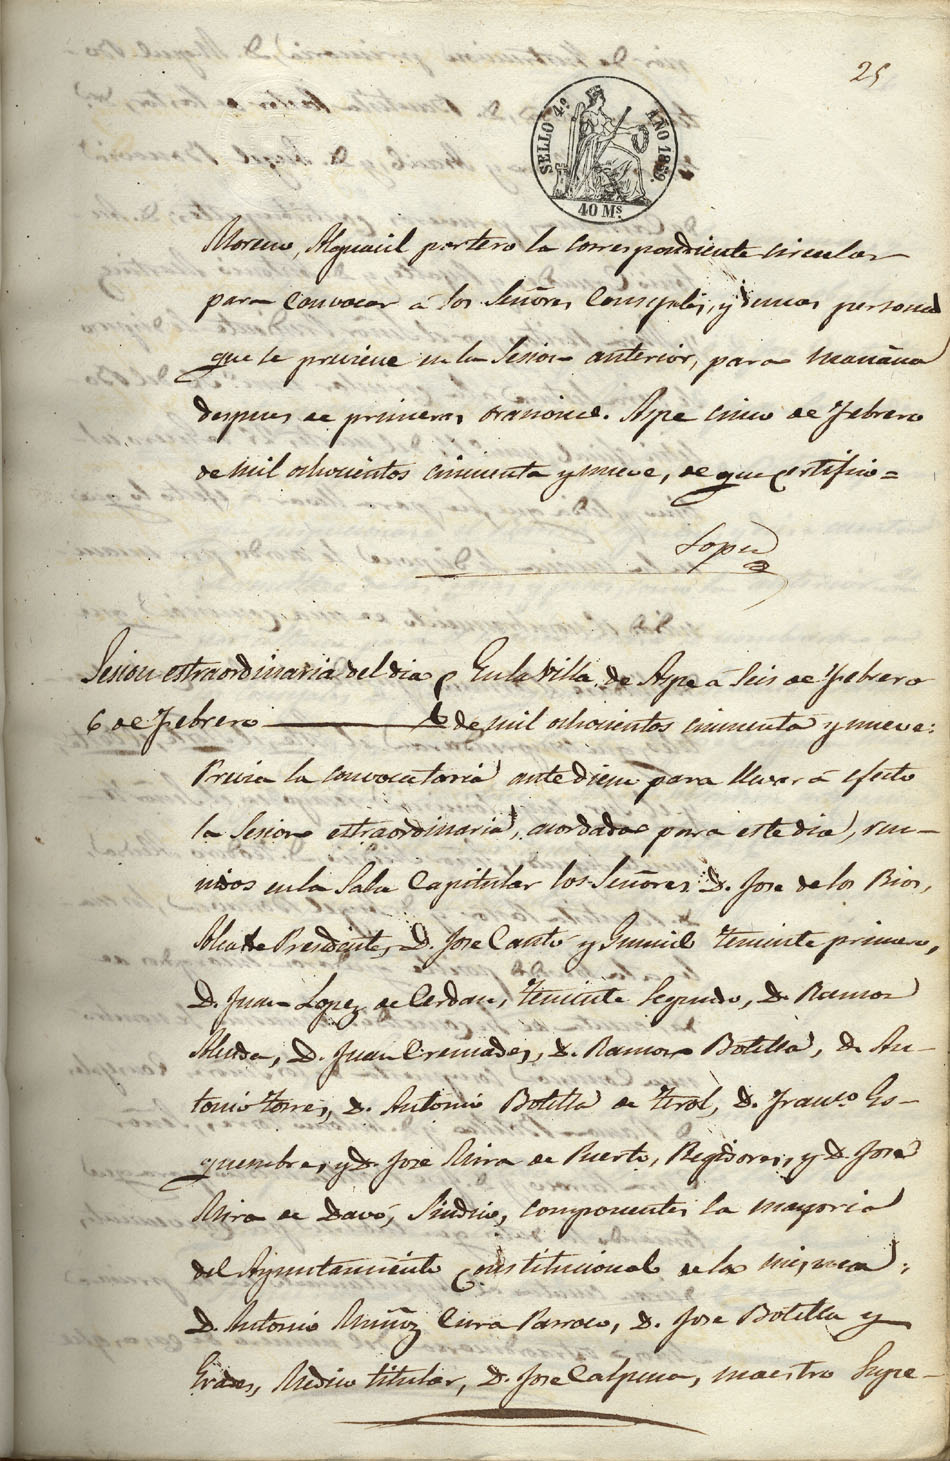 25
SELLO 4.º AÑO 1859.
40 Ms
Moreno, Alguacil portero la correspondiente circular
para convocar á los Señores Concejales, y demas personas
que se previene en la Sesion anterior, para mañana
despues de primeras oraciones. Aspe cinco de Febrero
de mil ochocientos cincuenta y nueve, de que certifico=
Lopez
Sesion estraordinaria del dia
6 de Febrero
En la Villa de Aspe á Seis de Febrero
de mil ochocientos cincuenta y nueve:
Previa la convocatoria ante diem para llevar á efecto
la Sesion estraordinaria, acordada para este dia, reu-
nidos en la Sala Capitular los Señores D. Jose de los Rios,
Alcalde Presidente, D. Jose Cantó y Gumiel teniente primero,
D. Juan Lopez de Cerdan, teniente Segundo, D. Ramon
Alenda, D. Juan Cremades, D. Ramon Botella, D. An-
tonio Torres, D. Antonio Botella de Terol, D. Franco. Es-
quembre, y D. Jose Mira de Puerto, Regidores, y D. José
Mira de Davó, Sindico, componentes la mayoria
del Ayuntamiento Constitucional de la misma;
D. Antonio Muñoz Cura Parroco, D. Jose Botella y
Grades, Medico titular, D. Jose Calpena, maestro Supe-